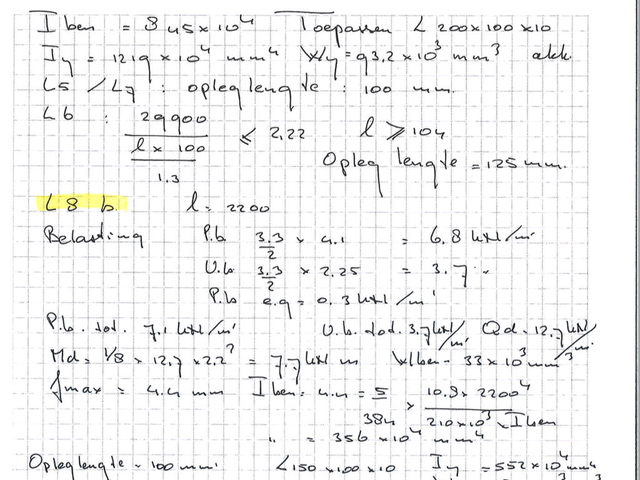 I ben = 845 x 10⁴ Toepassen L 200x100x10
Iy = 1219 x 10⁴ mm⁴ Wy = 93,2 x 10³ mm³ akk.
L5 / L7 : opleglengte : 100 mm.
L6 : 29900 / (l x 100 / 1.3) ≤ 2,22 l ≥ 104
Opleg lengte = 125 mm.
L8 b. l = 2200
Belasting P.b. 3.3/2 x 4.1 = 6.8 kN/m'
U.b. 3.3/2 x 2.25 = 3.7 "
P.b. e.g = 0.3 kN/m'
P.b. tot. 7.1 kN/m' U.b. tot. 3.7 kN/m' Qd = 12.7 kN/m'
Md = 1/8 x 12.7 x 2.2² = 7.7 kN m Wben = 33 x 10³ mm³
fmax = 4.4 mm I ben : 4.4 = 5/384 x 10.8 x 2200⁴ / 210 x 10³ x Iben
" = 356 x 10⁴ mm⁴
Opleglengte = 100 mm. L150 x 100 x 10 Iy = 552 x 10⁴ mm⁴